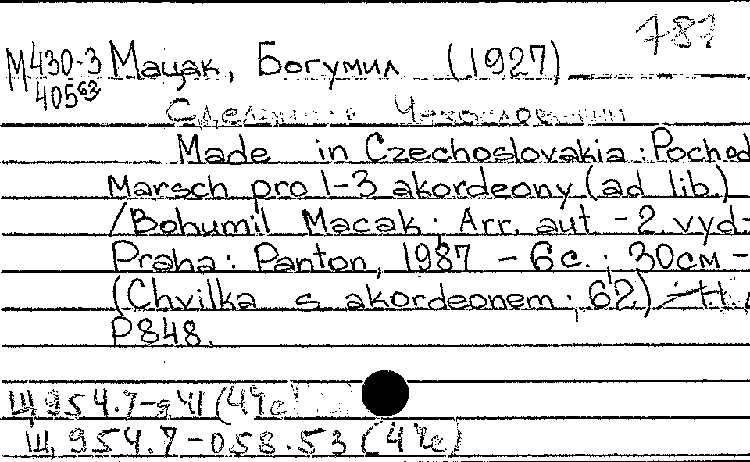 781
М430-3 Мацак, Богумил (1927)
405⁶³
Сделано в Чехословакии
Made in Czechoslovakia : Pochod
Marsch pro 1-3 akordeony (ad lib.)
/Bohumil Macak; Arr. aut - 2. vyd.
Praha : Panton, 1987 - 6 с.; 30 см -
(Chvilka s akordeonem; 62)
Р848.
Щ954.7-941 (4Че)
Щ954.7-058.53 (4Че)